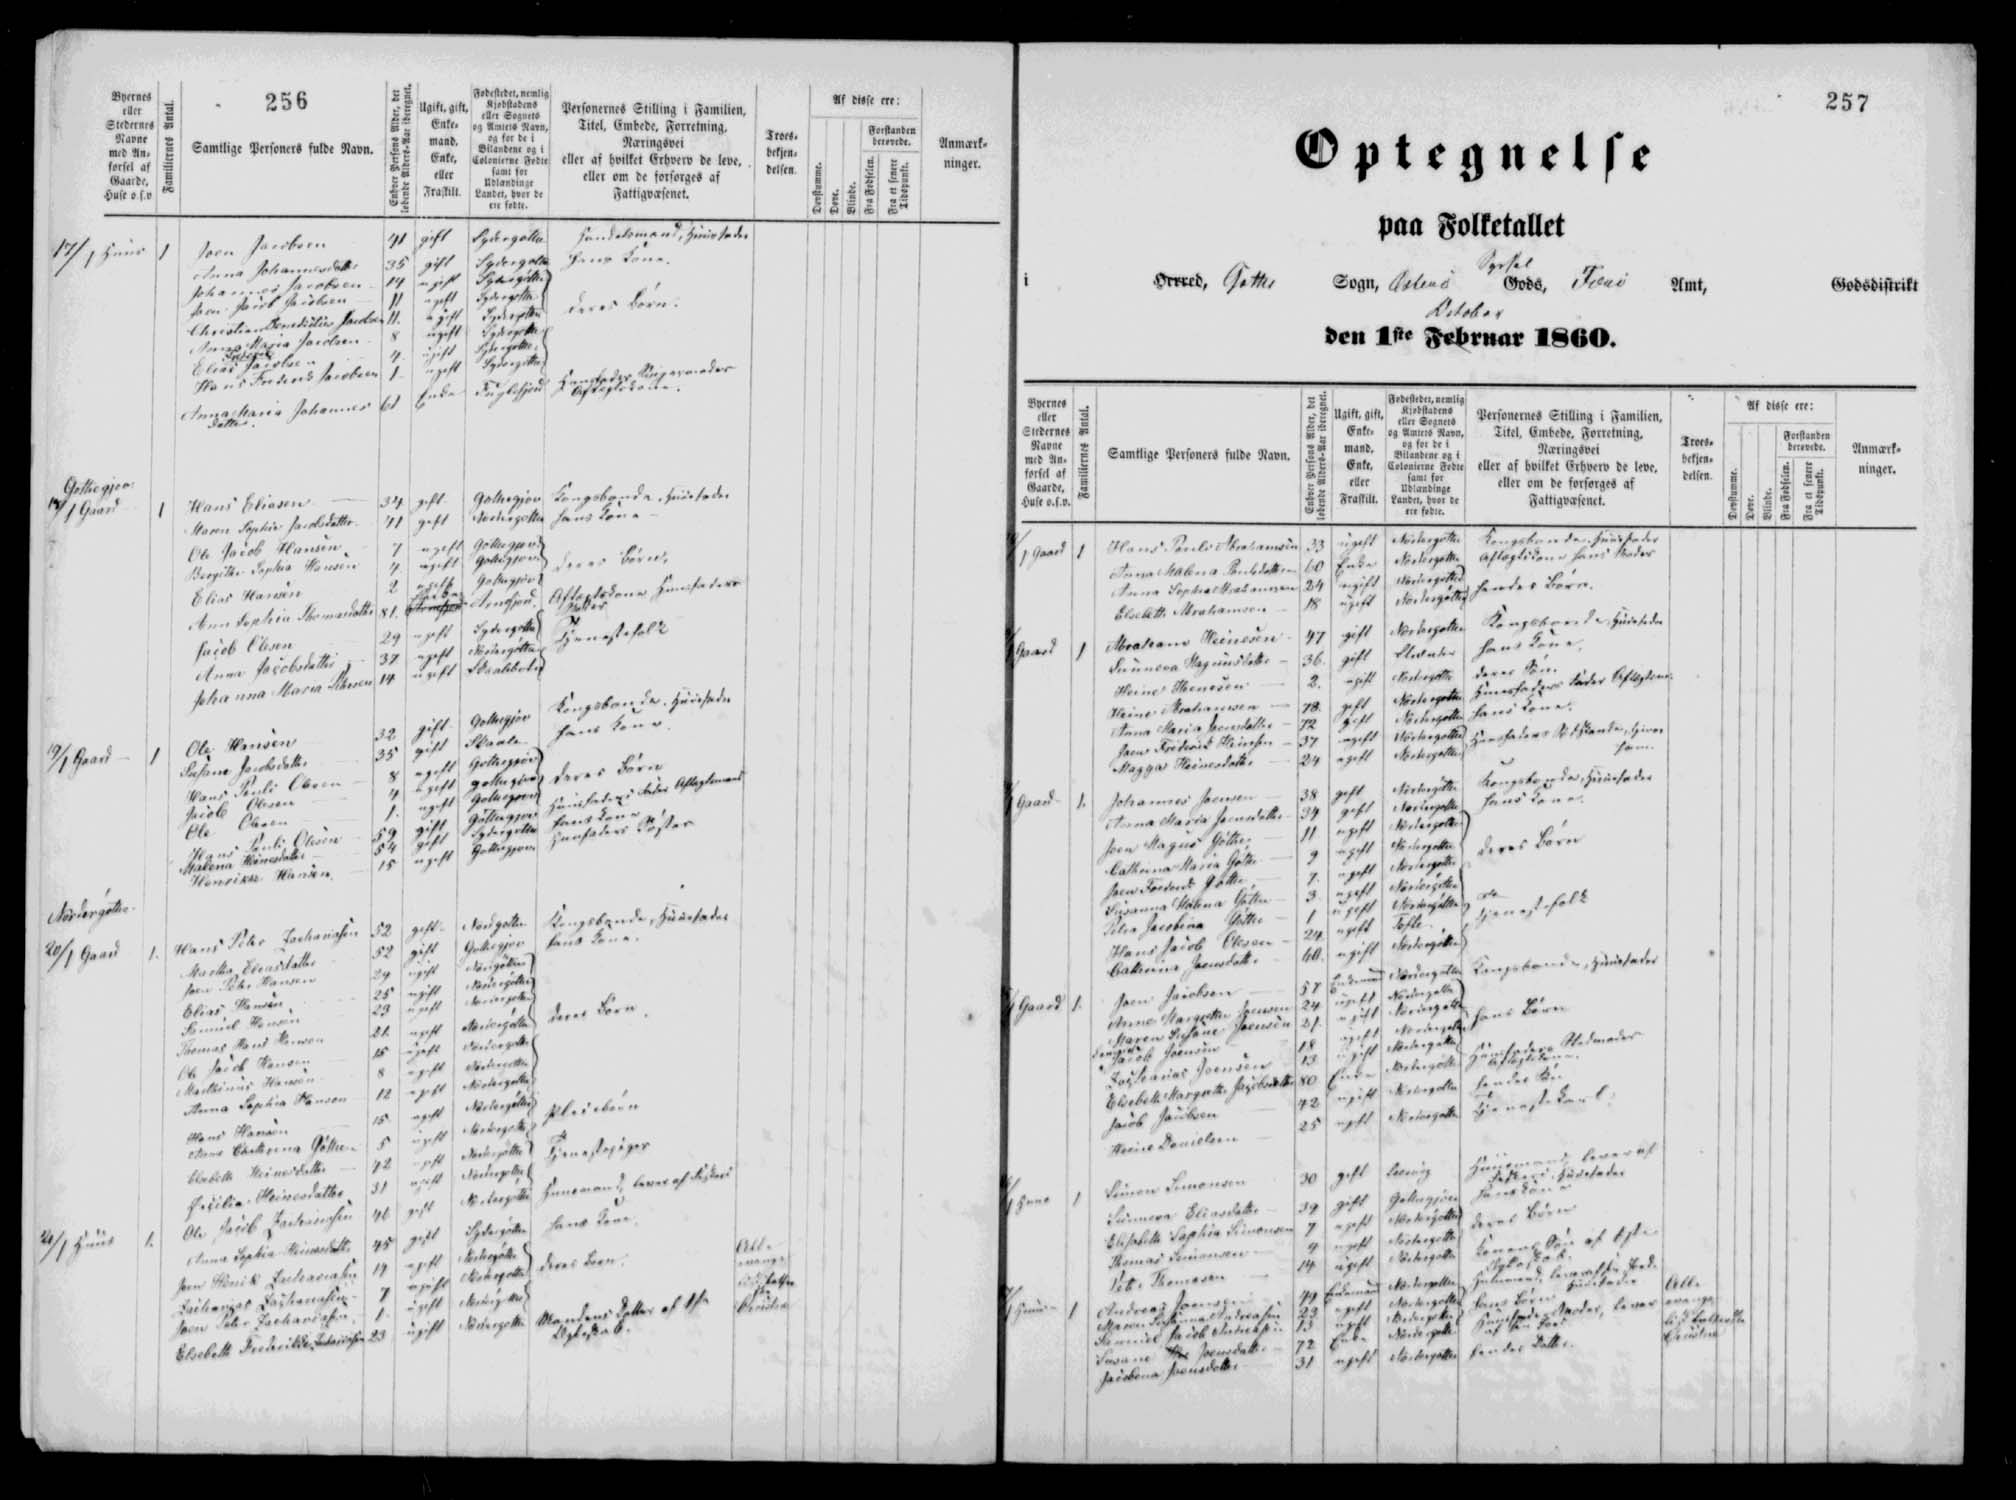 256
Byernes eller Stedernes Navne med Anførsel af Gaarde, Huse o.s.v
Familiernes Antal.
Samtlige Personers fulde Navn.
Enhver Persons Alder, det løbende Alders-Aar iberegnet.
Ugift, gift, Enkemand, Enke, eller Fraskilt.
Fødestedet, nemlig Kjøbstadens eller Sognets og Amtets Navn, og for de i Bilandene og i Colonierne Fødte samt for Udlændinge Landet, hvor de ere fødte.
Personernes Stilling i Familien, Titel, Embede, Forretning, Næringsvei eller af hvilket Erhverv de leve, eller om de forsørges af Fattigvæsenet.
Troesbekjendelsen.
Af disse ere:
Døvstumme.
Døve.
Blinde.
Forstanden berøvede.
Fra Fødselen.
Fra et senere Tidspunkt.
Anmærkninger.
17/1 Huus 1 Joen Jacobsen 41 gift Sydergøtte Handelsmand, Huusfader
Anna Johannesdatter 35 gift Sydergøtte hans Kone.
Johannes Jacobsen 14 ugift Sydergøtte
Joen Jacob Jacobsen 11 ugift Sydergøtte deres Børn.
Christian Benedictus Jacobsen 11. ugift Sydergøtte
Anna Maria Jacobsen 8 ugift Sydergøtte
Elias Jacobsen 4 ugift Sydergøtte
Hans Frederik Jacobsen 1 ugift Sydergøtte
Anna Maria Johannesdatter. 61 Enke Fuglefjord
Gøthegjov
18/1 Gaard 1 Hans Eliasen 34 gift Gøthegjov Kongsbonde, Huusfader
Maren Sophia Jacobsdatter 41 gift Nordergøtte hans Kone
Ole Jacob Hansen 7 ugift Gøthegjov
Birgithe Sophia Hansen 4 ugift Gøthegjov deres Børn.
Elias Hansen 2 ugift Gøthegjov
Ann Sophia Thomasdatter 81. Enke Arnefjord Aftægtskone Huusfaders Moder
Jacob Olesen 29 ugift Sydergøtte Tjenestefolk
Anna Jacobsdatter 37 ugift Nordergøtte
Johanna Maria Hansen 14 ugift
19/1 Gaard 1 Ole Hansen 32 gift Gøthegjov Kongsbonde, Huusfader
Susane Jacobsdatter 35 gift Skaale hans Kone.
Hans Pauli Olesen 8 ugift Gøthegjov
Jacob Olesen 4 ugift Gøthegjov deres Børn
Ole Olesen 1. ugift Gøthegjov
Hans Pauli Olesen 59 gift Gøthegjov Huusfaders Fader Aftægtsmand
Malena Heinesdatter 54 gift Sydergøtte hans Kone
Henrikke Hansen 15 ugift Gøthegjov Huusfaders Søster
Nordergøthe
20/1 Gaard 1. Hans Peter Zachariasen 52 gift Nordergøtte Kongsbonde, Huusfader
Martha Eliasdatter 52 gift Gøthegjov hans Kone.
Joen Peter Hansen 29 ugift Nordergøtte
Elias Hansen 25 ugift Nordergøtte
Samuel Hansen 23 ugift Nordergøtte
Thomas Hans Hansen 21 ugift Nordergøtte deres Børn.
Ole Jacob Hansen 15 ugift Nordergøtte
Mathinus Hansen 8 ugift Nordergøtte
Anna Sophia Hansen 12 ugift Nordergøtte
Hans Hansen 15 ugift Nordergøtte Pleiebørn
Anne Cathrina Gøthe 5 ugift Nordergøtte
Elsebeth Heinesdatter 42 ugift Nordergøtte Tjenestepiger
Cecilia Heinesdatter 31 ugift Nordergøtte
21/1 Huus 1. Ole Jacob Zachariasen 46 gift Nordergøtte Huusmand, lever af Fiskeri
Anna Sophia Heinesdatter 45 gift Sydergøtte hans Kone.
Joen Henrik Zachariasen 14 ugift Nordergøtte deres Børn.
Zacharias Zachariasen 7 ugift Nordergøtte
Joen Peter Zachariasen 1. ugift Nordergøtte
Elsebeth Frederikke Zachariasen 23 ugift Nordergøtte Mandens Datter af 1ste Ægteskab.
257
Optegnelse
paa Folketallet
i Herred, Gøthe Sogn, Østerø Syssel Gods, Færø Amt, Godsdistrikt
October
den 1ste Februar 1860.
Byernes eller Stedernes Navne med Anførsel af Gaarde, Huse o.s.v.
Familiernes Antal.
Samtlige Personers fulde Navn.
Enhver Persons Alder, det løbende Alders-Aar iberegnet.
Ugift, gift, Enkemand, Enke, eller Fraskilt.
Fødestedet, nemlig Kjøbstadens eller Sognets og Amtets Navn, og for de i Bilandene og i Colonierne Fødte samt for Udlændinge Landet, hvor de ere fødte.
Personernes Stilling i Familien, Titel, Embede, Forretning, Næringsvei eller af hvilket Erhverv de leve, eller om de forsørges af Fattigvæsenet.
Troesbekjendelsen.
Af disse ere:
Døvstumme.
Døve.
Blinde.
Forstanden berøvede.
Fra Fødselen.
Fra et senere Tidspunkt.
Anmærkninger.
1 Gaard 1 Hans Pauli Abrahamsen 33 ugift Nordergøtte Kongsbonde, Huusfader
Anna Malena Poulsdatter 60 Enke Nordergøtte Aftægtskone hans Moder
Anna Sophia Abrahamsen 24 ugift Nordergøtte hendes Børn.
Elsebeth Abrahamsen 18 ugift Nordergøtte
Gaard 1 Abraham Heinesen 47 gift Nordergøtte Kongsbonde, Huusfader
Sunneva Magnusdatter 36. gift hans Kone.
Heine Heinesen 2. ugift Nordergøtte deres Søn
Heine Abrahamsen 78. gift Nordergøtte Huusfaders Fader Aftægtsm.
Anna Maria Joensdatter 72 gift Nordergøtte hans Kone.
Joen Frederik Heinesen 37 ugift Nordergøtte
Magga Heinesdatter 24 ugift Nordergøtte
Gaard 1. Johannes Joensen 38 gift Nordergøtte Kongsbonde, Huusfader
Anna Maria Joensdatter 39 gift Nordergøtte hans Kone.
Joen Magnus Gøthe 11 ugift Nordergøtte
Cathrina Maria Gøthe 9 ugift Nordergøtte deres Børn
Joen Frederik Gøthe 7. ugift Nordergøtte
Susanna Malena Gøthe 3 ugift Nordergøtte
Petra Jacobina Gøthe 1 ugift Nordergøtte
Hans Jacob Olesen 24 ugift Tofte Tjenestefolk
Cathrina Joensdatter 60. ugift Nordergøtte
Gaard 1. Joen Jacobsen 57 Enkemand Nordergøtte Kongsbonde, Huusfader
Anne Margrethe Joensen 24 ugift Nordergøtte
Maren Susane Joensen 21. ugift Nordergøtte hans Børn
Jacob Joensen 18 ugift Nordergøtte
Zacharias Joensen 13 ugift Nordergøtte
Elsebeth Margrethe Jacobsdatter 80 Enke Nordergøtte Huusfaders Stedmoder Aftægtskone.
Jacob Jacobsen 42 ugift Nordergøtte hendes Søn
Heine Danielsen 25 ugift Nordergøtte Tjenestekarl.
Huus 1 Simon Simonsen 30 gift Leervig Huusmand, lever af Fiskeri, Huusfader
Sunneva Eliasdatter 39 gift Gøthegjov hans Kone
Elisabeth Sophia Simonsen 7 ugift Nordergøtte deres Børn
Thomas Simonsen 9 ugift Nordergøtte
Peter Thomasen 14 ugift Nordergøtte Konens Søn af 1ste Ægteskab.
Huus 1 Andreas Joensen 49 Enkemand Nordergøtte
Maren Susanna Andreasen 23 ugift Nordergøtte hans Børn
Samuel Jacob Andreasen 13 ugift Nordergøtte
Susane Joensdatter 72 Enke Nordergøtte
Jacobina Joensdatter 31 ugift Nordergøtte hendes Datter.